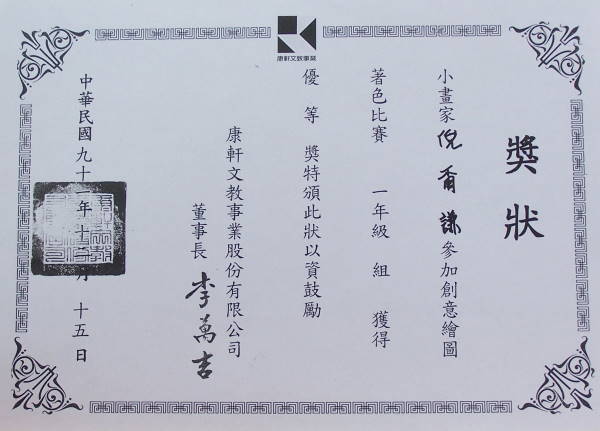 康軒文教事業
獎狀
小畫家倪甯謙參加創意繪圖
著色比賽 一年級 組 獲得
優 等 獎特頒此狀以資鼓勵
康軒文教事業股份有限公司
董事長 李萬吉
中華民國九十 年十 月 十五 日